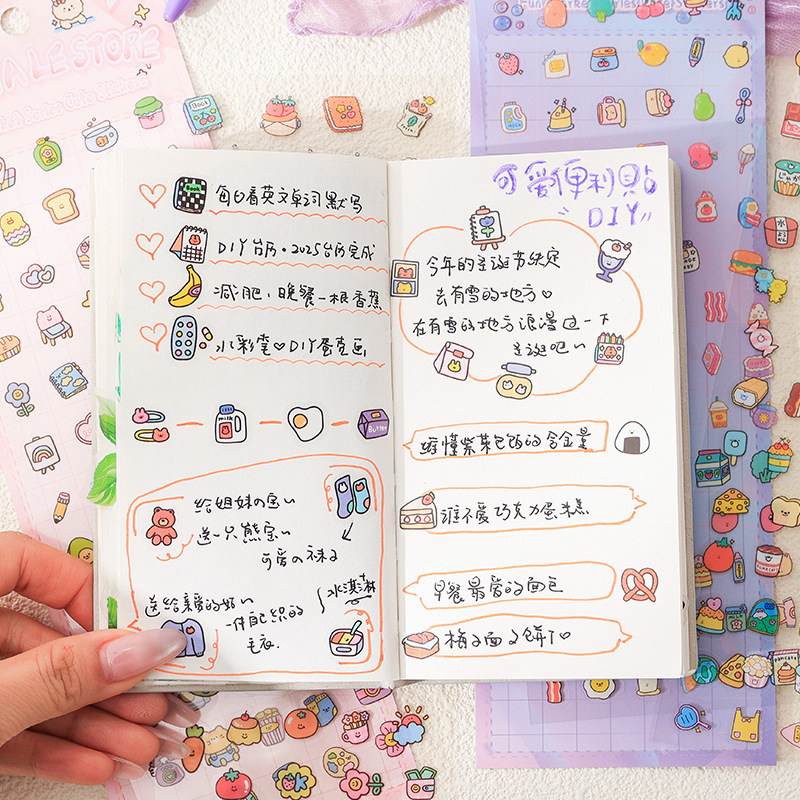 每日看英文单词默写
DIY台历·2025台历完成
减肥,晚餐一根香蕉
水彩笔♡DIY蛋壳画
milk
Butter
给姐妹の宝~
送一只熊宝~
可爱の袜子
送给亲爱的妈~
一件自己织的
毛衣.
冰淇淋
可爱便利貼
DIY
今年的圣诞节决定
去有雪的地方♡
在有雪的地方浪漫过一下
圣诞吧~
谁懂紫菜包饭的含金量
谁不爱巧克力蛋糕
早餐最爱的面包
橘子面包饼干♡
Book
A LE STORE